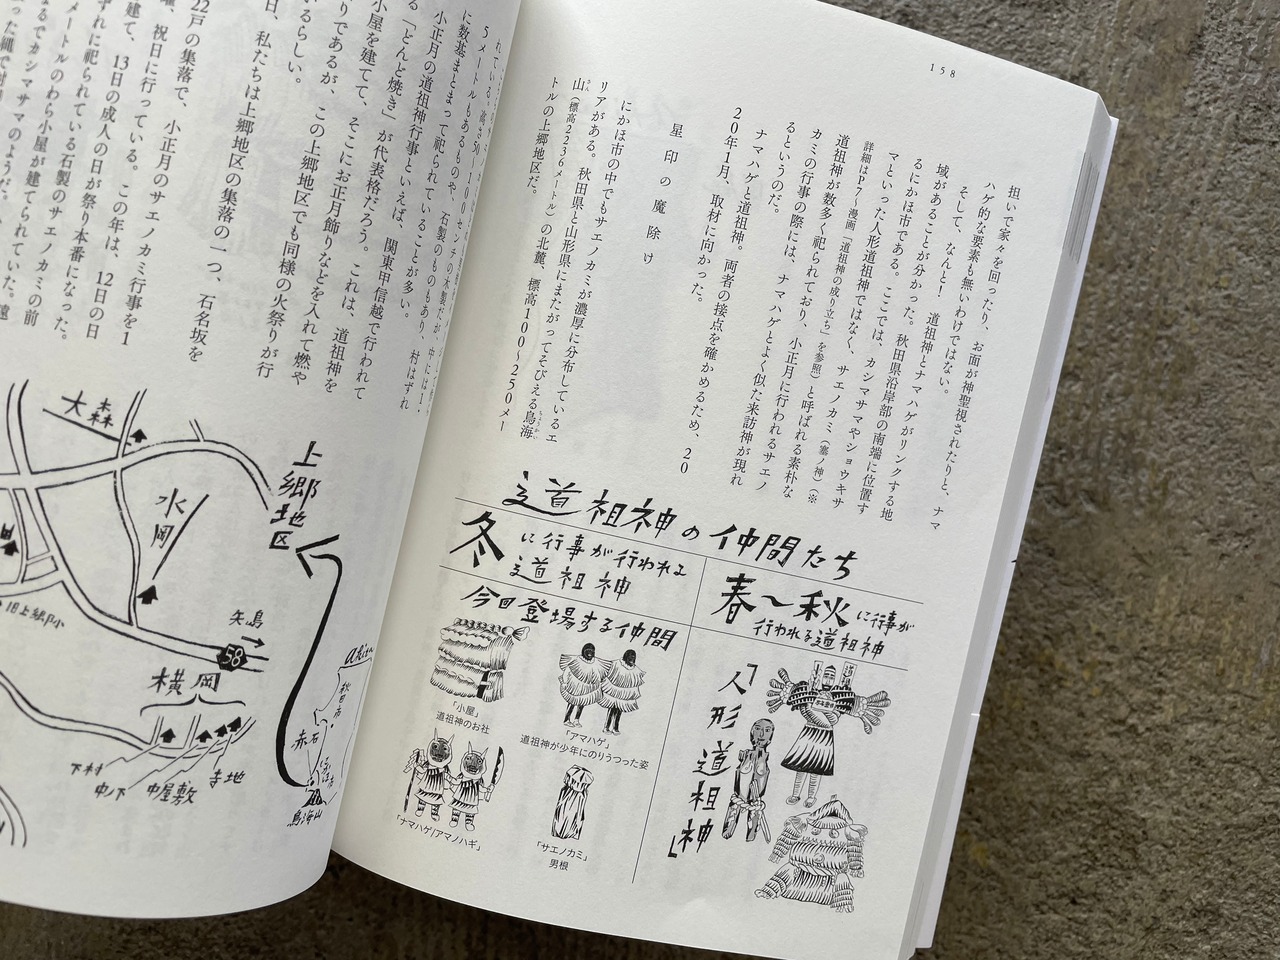 158
担いで家々を回ったり、お面が神聖視されたりと、ナマ
ハゲ的な要素も無いわけではない。
そして、なんと! 道祖神とナマハゲがリンクする地
域があることが分かった。秋田県沿岸部の南端に位置す
るにかほ市である。ここでは、カシマサマやショウキサ
マといった人形道祖神ではなく、サエノカミ(塞ノ神)(※
詳細はP7〜漫画「道祖神の成り立ち」を参照)と呼ばれる素朴な
道祖神が数多く祀られており、小正月に行われるサエノ
カミの行事の際には、ナマハゲとよく似た来訪神が現れ
るというのだ。
ナマハゲと道祖神。両者の接点を確かめるため、20
20年1月、取材に向かった。
星印の魔除け
にかほ市の中でもサエノカミが濃厚に分布しているエ
リアがある。秋田県と山形県にまたがってそびえる鳥海
山(標高2236メートル)の北麓、標高100〜250メー
トルの上郷地区だ。
道祖神の仲間たち
冬に行事が行われる
道祖神
今回登場する仲間
「小屋」
道祖神のお社
「アマハゲ」
道祖神が少年にのりうつった姿
「ナマハゲ/アマノハギ」
「サエノカミ」
男根
春〜秋に行事が
行われる道祖神
「人形道祖神」
5メートルもあるものや、石製のものもあり、村はずれ
に数基まとまって祀られていることが多い。
小正月の道祖神行事といえば、関東甲信越で行われて
「どんど焼き」が代表格だろう。これは、道祖神を
小屋を建てて、そこにお正月飾りなどを入れて燃や
りであるが、この上郷地区でも同様の火祭りが行
いるらしい。
日、私たちは上郷地区の集落の一つ、石名坂を
22戸の集落で、小正月のサエノカミ行事を1
祝日に行っている。この年は、12日の日
建て、13日の成人の日が祭り本番になった。
ずれに祀られている石製のサエノカミの前
メートルのわら小屋が建てられていた。
なるでカシマサマのようだ。
大森
上郷地区
水岡
旧上郷小
矢島
58
横岡
下村
中ノ下
中屋敷
寺地
赤石
鳥海山